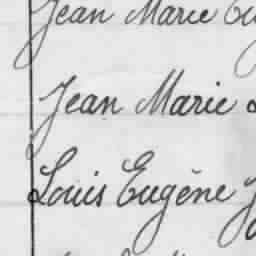 Jean Marie
Jean Marie
Louis Eugène